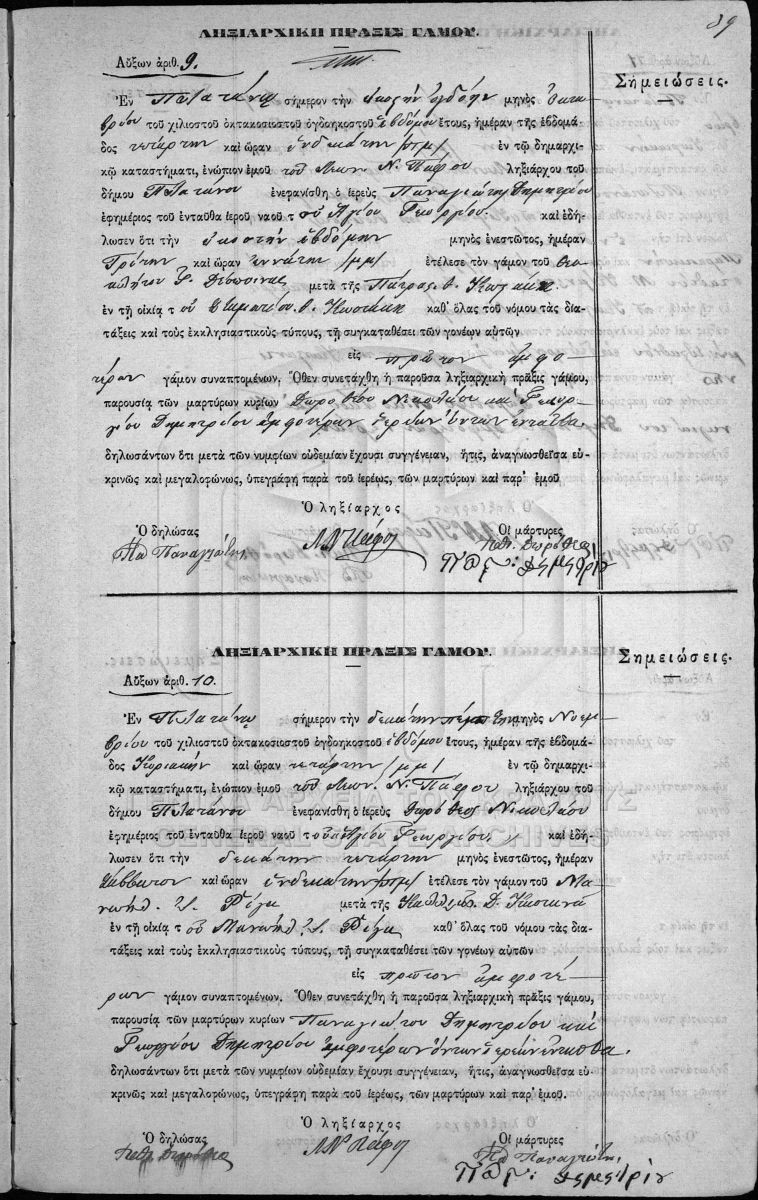 89
ΛΗΞΙΑΡΧΙΚΗ ΠΡΑΞΙΣ ΓΑΜΟΥ.
Αὔξων ἀριθ. 9.
Σημειώσεις.
Ἐν Πλατάνῳ σήμερον τὴν εἰκοστὴν ὀγδόην μηνὸς Ὀκτω
βρίου τοῦ χιλιοστοῦ ὀκτακοσιοστοῦ ὀγδοηκοστοῦ ἑβδόμου ἔτους, ἡμέραν τῆς ἑβδομά
δος τετάρτην καὶ ὥραν ἑνδεκάτην /πμ/ ἐν τῷ δημαρχι
κῷ καταστήματι, ἐνώπιον ἐμοῦ τοῦ Λεων. Ν. Πάφου ληξιάρχου τοῦ
δήμου Πλατάνου ἐνεφανίσθη ὁ ἱερεὺς Παναγιώτης Δημητρίου
ἐφημέριος τοῦ ἐνταῦθα ἱεροῦ ναοῦ τοῦ Ἁγίου Γεωργίου. καὶ ἐδή
λωσεν ὅτι τὴν εἰκοστὴν ἑβδόμην μηνὸς ἐνεστῶτος, ἡμέραν
Τρίτην καὶ ὥραν ἐννάτην /μμ/ ἐτέλεσε τὸν γάμον τοῦ
μετὰ τῆς
ἐν τῇ οἰκίᾳ τοῦ καθ' ὅλας τοῦ νόμου τὰς δια
τάξεις καὶ τοὺς ἐκκλησιαστικοὺς τύπους, τῇ συγκαταθέσει τῶν γονέων αὐτῶν
εἰς πρῶτον ἀμφο
τέρων γάμον συναπτομένων. Ὅθεν συνετάχθη ἡ παροῦσα ληξιαρχικὴ πρᾶξις γάμου,
παρουσίᾳ τῶν μαρτύρων κυρίων Δωροθέου Νικολάου καὶ Γεωρ
γίου Δημητρίου ἀμφοτέρων ἱερέων ὄντων ἐνταῦθα.
δηλωσάντων ὅτι μετὰ τῶν νυμφίων οὐδεμίαν ἔχουσι συγγένειαν, ἥτις, ἀναγνωσθεῖσα εὐ
κρινῶς καὶ μεγαλοφώνως, ὑπεγράφη παρὰ τοῦ ἱερέως, τῶν μαρτύρων καὶ παρ' ἐμοῦ
Ὁ ληξίαρχος
Ὁ δηλώσας Οἱ μάρτυρες
Πα Παναγιώτης ΛΝΠάφος
ΛΗΞΙΑΡΧΙΚΗ ΠΡΑΞΙΣ ΓΑΜΟΥ.
Αὔξων ἀριθ. 10.
Σημειώσεις.
Ἐν Πλατάνῳ σήμερον τὴν δεκάτην πέμπτην μηνὸς Νοεμ
βρίου τοῦ χιλιοστοῦ ὀκτακοσιοστοῦ ὀγδοηκοστοῦ ἑβδόμου ἔτους, ἡμέραν τῆς ἑβδομά
δος Κυριακὴν καὶ ὥραν τετάρτην /μμ/ ἐν τῷ δημαρχι
κῷ καταστήματι, ἐνώπιον ἐμοῦ τοῦ Λεων. Ν. Πάφου ληξιάρχου τοῦ
δήμου Πλατάνου ἐνεφανίσθη ὁ ἱερεὺς Δωρόθεος Νικολάου
ἐφημέριος τοῦ ἐνταῦθα ἱεροῦ ναοῦ τοῦ Ἁγίου Γεωργίου καὶ ἐδή
λωσεν ὅτι τὴν δεκάτην τετάρτην μηνὸς ἐνεστῶτος, ἡμέραν
Σάββατον καὶ ὥραν ἑνδεκάτην /πμ/ ἐτέλεσε τὸν γάμον τοῦ Μα
νωὴλ μετὰ τῆς
ἐν τῇ οἰκίᾳ τοῦ Μανωὴλ καθ' ὅλας τοῦ νόμου τὰς δια
τάξεις καὶ τοὺς ἐκκλησιαστικοὺς τύπους, τῇ συγκαταθέσει τῶν γονέων αὐτῶν
εἰς πρῶτον ἀμφοτέ
ρων γάμον συναπτομένων. Ὅθεν συνετάχθη ἡ παροῦσα ληξιαρχικὴ πρᾶξις γάμου,
παρουσίᾳ τῶν μαρτύρων κυρίων Παναγιώτου Δημητρίου καὶ
Γεωργίου Δημητρίου ἀμφοτέρων ὄντων ἱερέων ἐνταῦθα.
δηλωσάντων ὅτι μετὰ τῶν νυμφίων οὐδεμίαν ἔχουσι συγγένειαν, ἥτις, ἀναγνωσθεῖσα εὐ
κρινῶς καὶ μεγαλοφώνως, ὑπεγράφη παρὰ τοῦ ἱερέως, τῶν μαρτύρων καὶ παρ' ἐμοῦ.
Ὁ ληξίαρχος
Ὁ δηλώσας Οἱ μάρτυρες
ΛΝΠάφος Πα Παναγιώτης